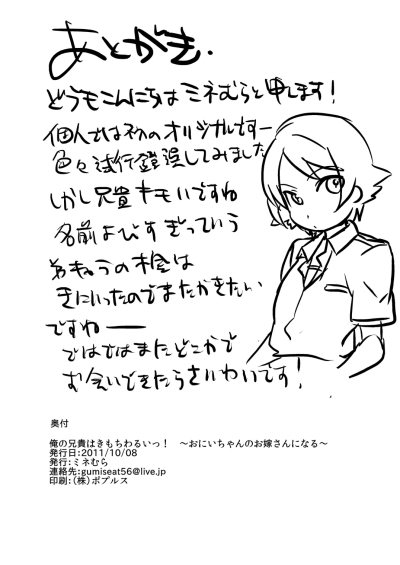 あとがき.
どうもこんにちはミネむらと申します!
個人では初のオリジナルですー
色々試行錯誤してみました
しかし兄貴キモいですね
名前よびすぎっていう
きにいったのでまたかきたい
ですねー
ではではまたどこかで
お会いできたらさいわいです!
奥付
俺の兄貴はきもちわるいっ! ～おにいちゃんのお嫁さんになる～
発行日:2011/10/08
発行:ミネむら
連絡先:gumiseat56@live.jp
印刷:(株)ポプルス